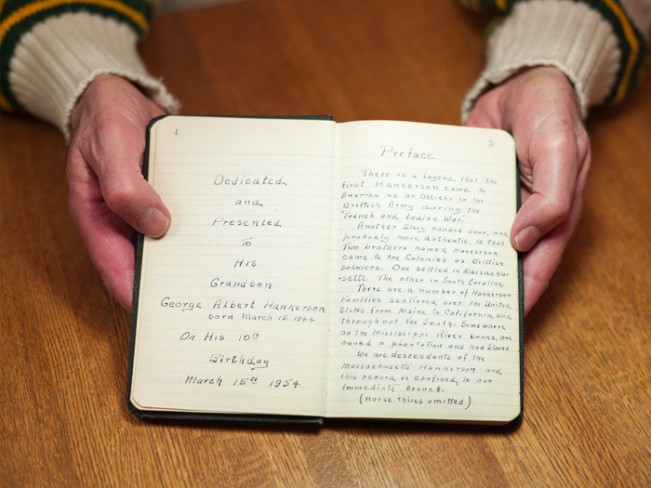 4
Dedicated
and
Presented
To
His
Grandson
George Albert Hankerson
born March 15 1944
On His 10th
Birthday
March 15th 1954
5
Preface
There is a legend, that the
first Hankerson came to
America as an Officer in the
British Army during the
"French and Indian War."
Another Story handed down, and
probably more authentic, is that
Two brothers named Hankerson
came to the Colonies as British
Soldiers. One settled in Massachu-
-setts. The other in South Carolina
There are a number of Hankerson
Families scattered over the United
States from Maine to California and
throughout the South. Somewhere
on the Mississippi River banks, one
owned a plantation and had Slaves
We are descendants of the
Massachusetts Hankerson and
this record is confined to our
immediate branch.
(Horse thieves omitted)